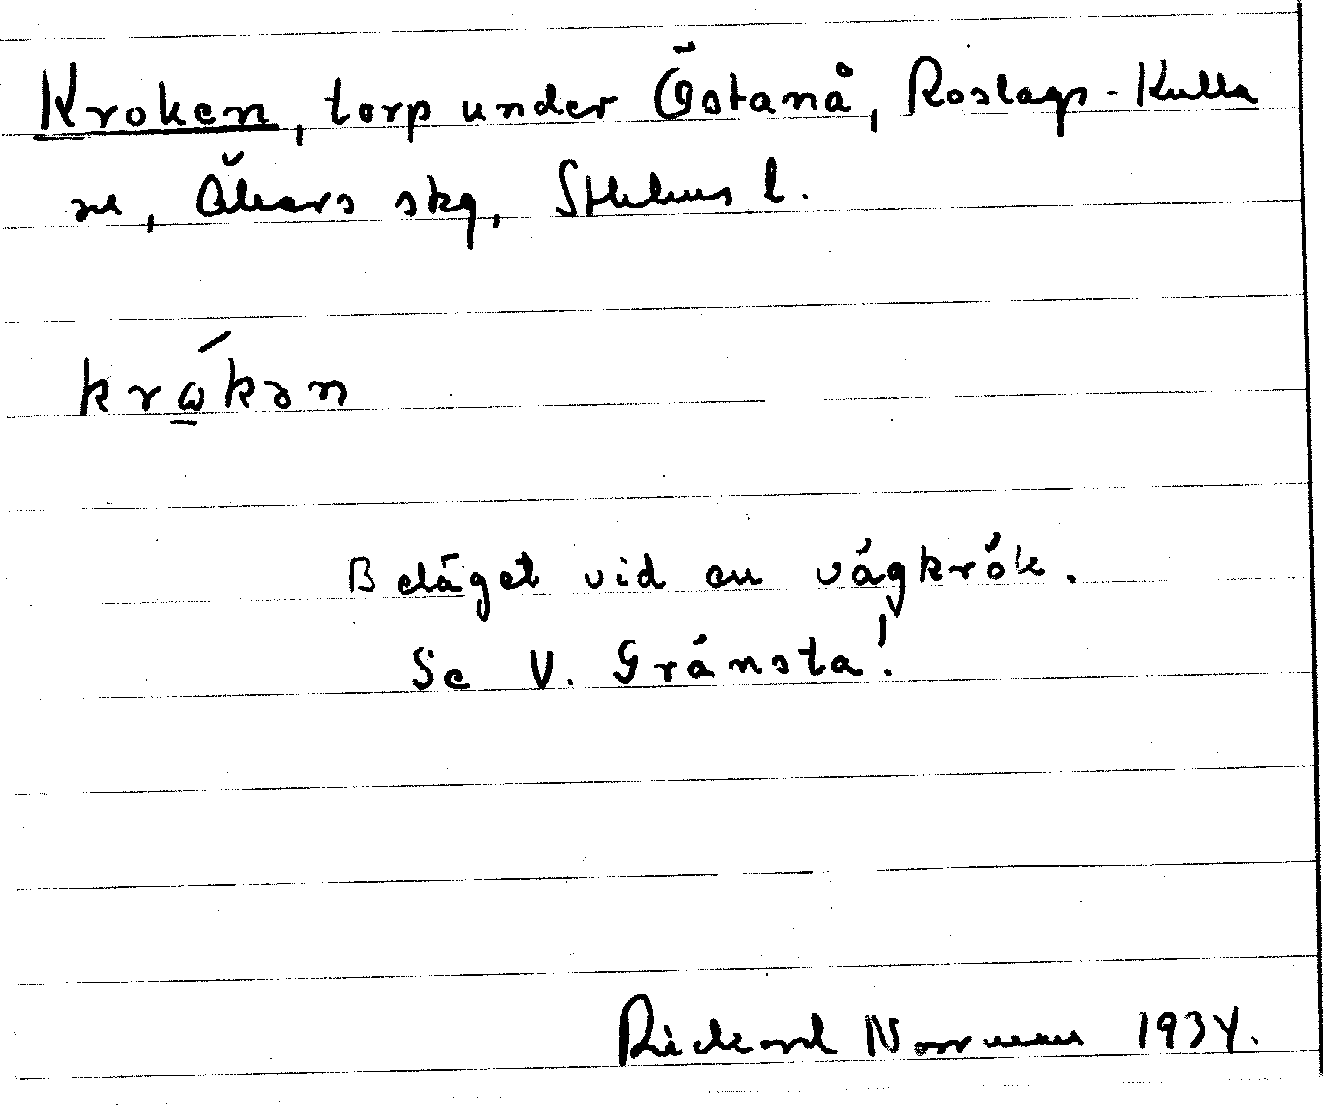 Kroken, torp under Östanå, Roslags-Kulla
sn, Åkers skg, Sthlms l.
krώ̱kən
Beläget vid en vägkrök.
Se V. Gränsta!
Rickard Norrman 1934.